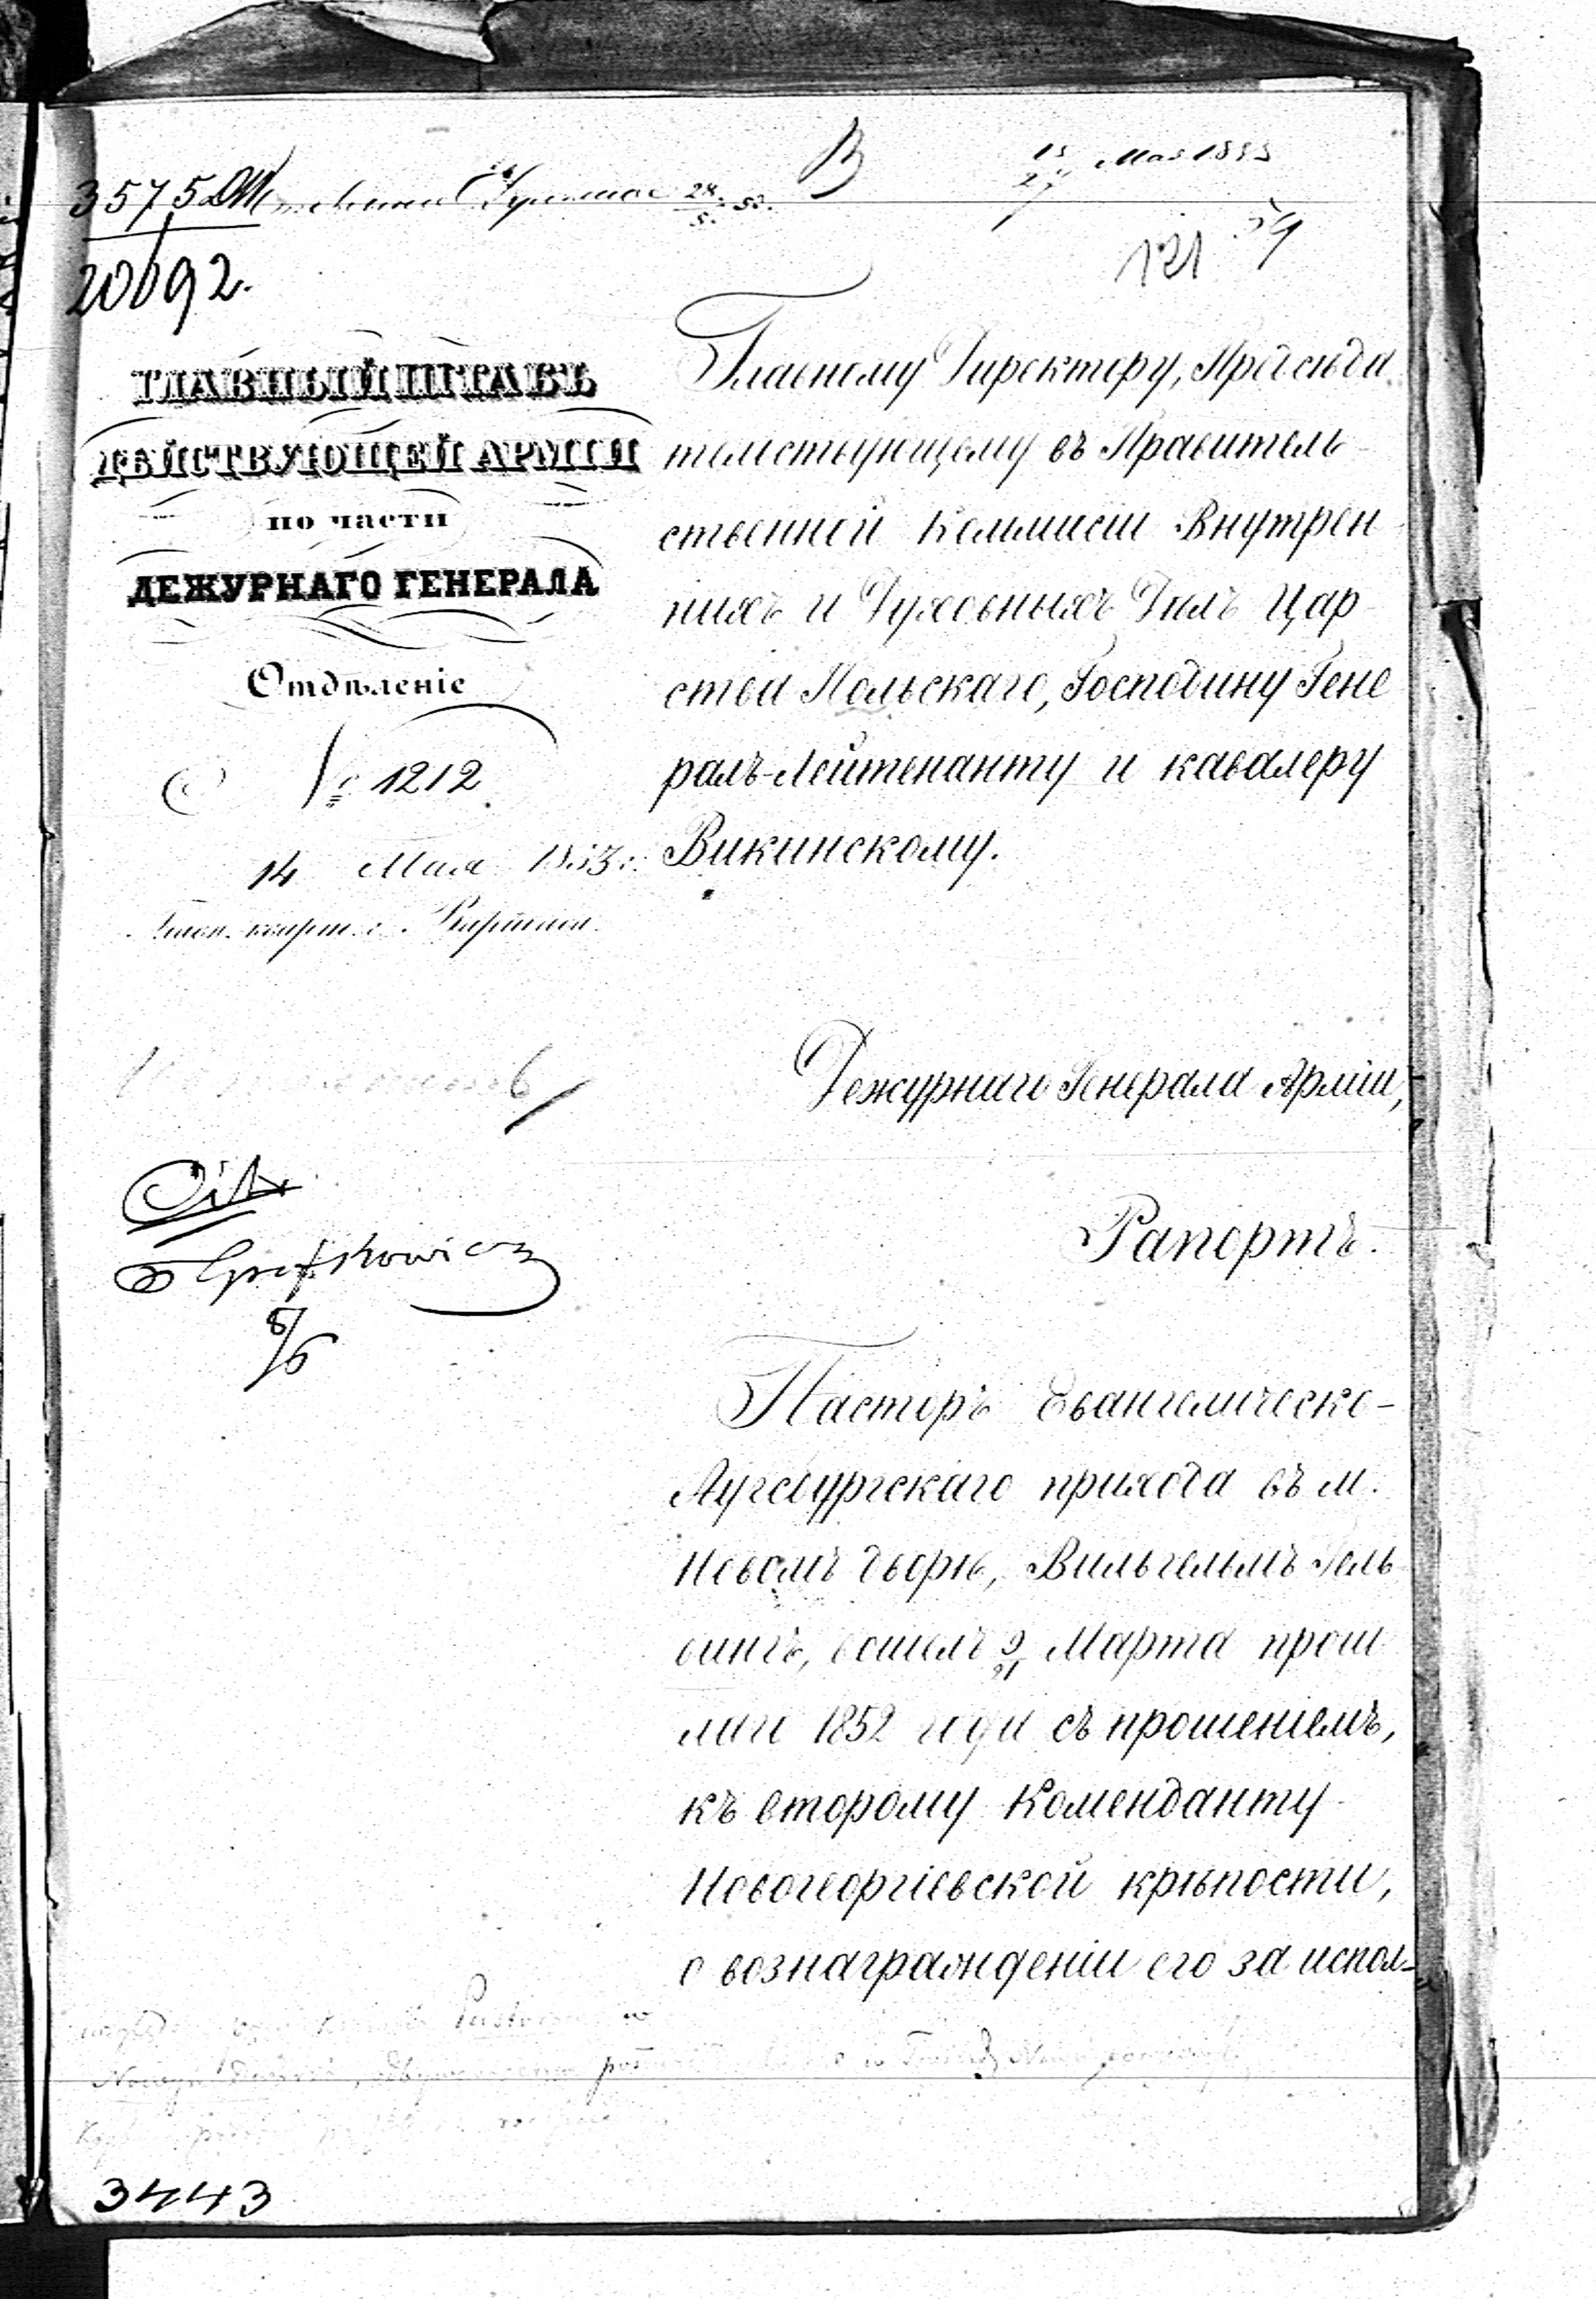 В
15/27 Мая 1853
3575
20692.
121
59
ГЛАВНЫЙ ШТАБЪ
ДѢЙСТВУЮЩЕЙ АРМІИ
по части
ДЕЖУРНАГО ГЕНЕРАЛА
Отдѣленіе
№ 1212
14 Мая 1853 г.
Главн. кварт. г. Варшава.
Главному Директору, Предсѣда
тельствующему въ Правитель-
ственной Коммисіи Внутрен
нихъ и Духовныхъ Дѣлъ Цар
ства Польскаго, Господину Гене
ралъ-Лейтенанту и кавалеру
Викинскому.
Дежурнаго Генерала Арміи,
Рапортъ.
8/6
Пасторъ Евангелическо-
Аугсбургскаго прихода въ м.
Новомъ дворѣ, Вильгельмъ Гель
вигъ, вошелъ 9/21 Марта прош
лаго 1852 года съ прошеніемъ,
къ второму Коменданту
Новогеоргіевской крѣпости,
о вознагражденіи его за испол-
3443